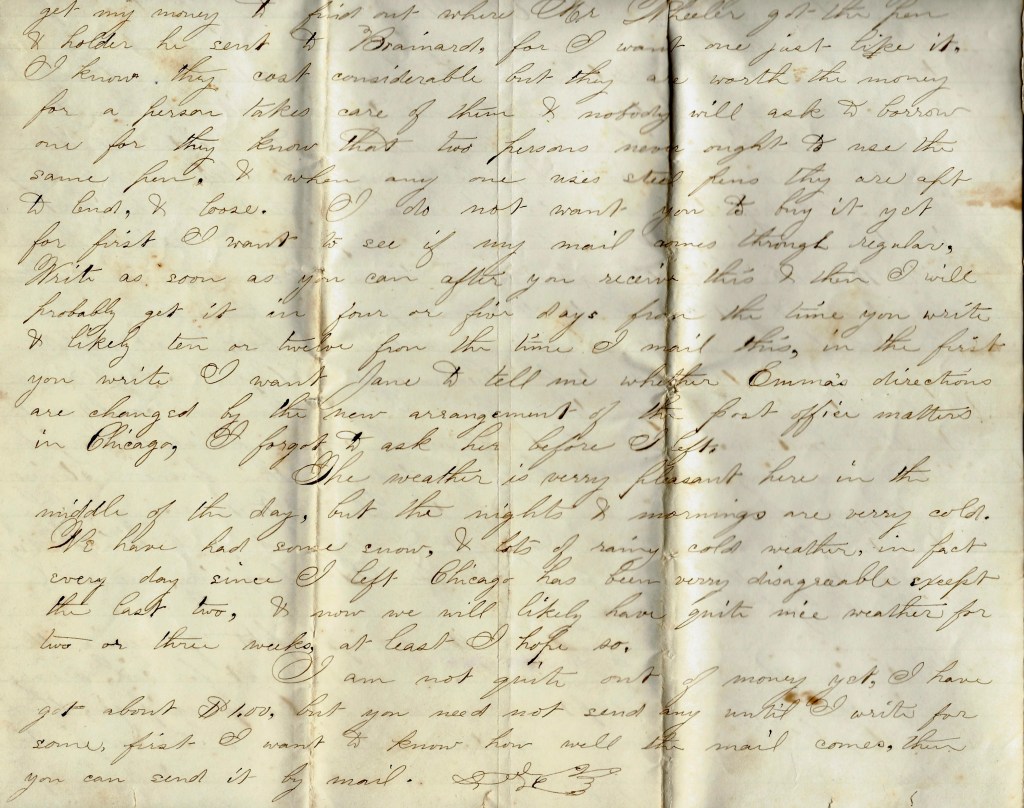 get my money to find out where Mr Wheeler got the pen
& holder he sent to Brainard, for I want one just like it.
I know they cost considerable but they are worth the money
for a person takes care of them & nobody will ask to borrow
one for they know that two persons never ought to use the
same pen, & when any one uses steel pens they are apt
to lend, & loose. I do not want you to buy it yet
for first I want to see if my mail comes through regular,
Write as soon as you can after you receive this & then I will
probably get it in four or five days from the time you write
& likely ten or twelve from the time I mail this, in the first
you write I want Jane to tell me whether Emma's directions
are changed by the new arrangement of the post office matters
in Chicago, I forgot to ask her before I left.
The weather is verry pleasant here in the
middle of the day, but the nights & mornings are verry cold.
We have had some snow, & lots of rainy cold weather, in fact
every day since I left Chicago has been verry disagreeable except
the last two, & now we will likely have quite nice weather for
two or three weeks, at least I hope so.
I am not quite out of money yet, I have
got about $1,00, but you need not send any until I write for
some, first I want to know how well the mail comes, then
you can send it by mail.